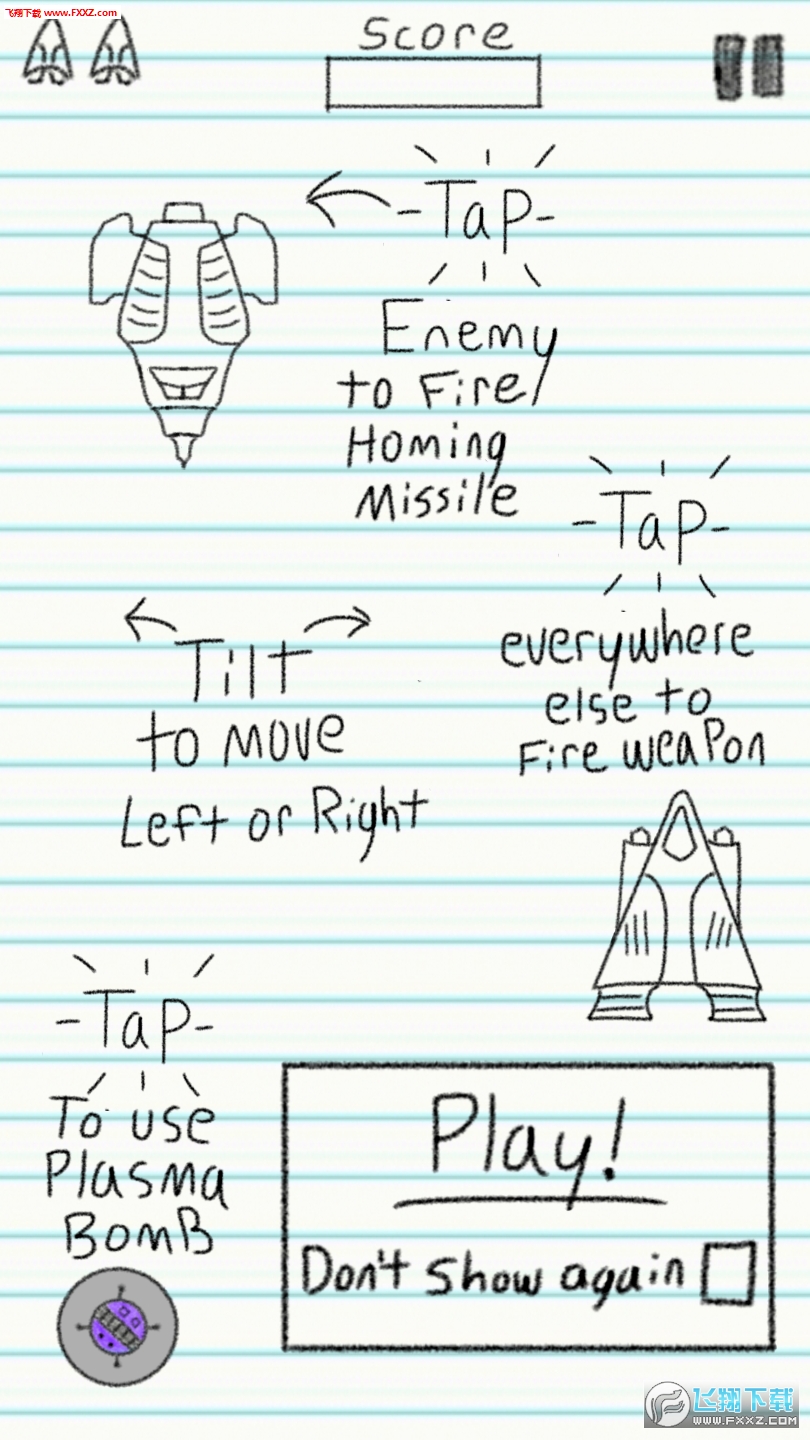 飞翔下载 www.FXXZ.com
Score
-Tap-
Enemy
to Fire
Homing
Missile
-Tap-
everywhere
else to
Fire weapon
Tilt
to move
Left or Right
-Tap-
To use
Plasma
Bomb
Play!
Don't show again
飞翔下载
WWW.FXXZ.COM